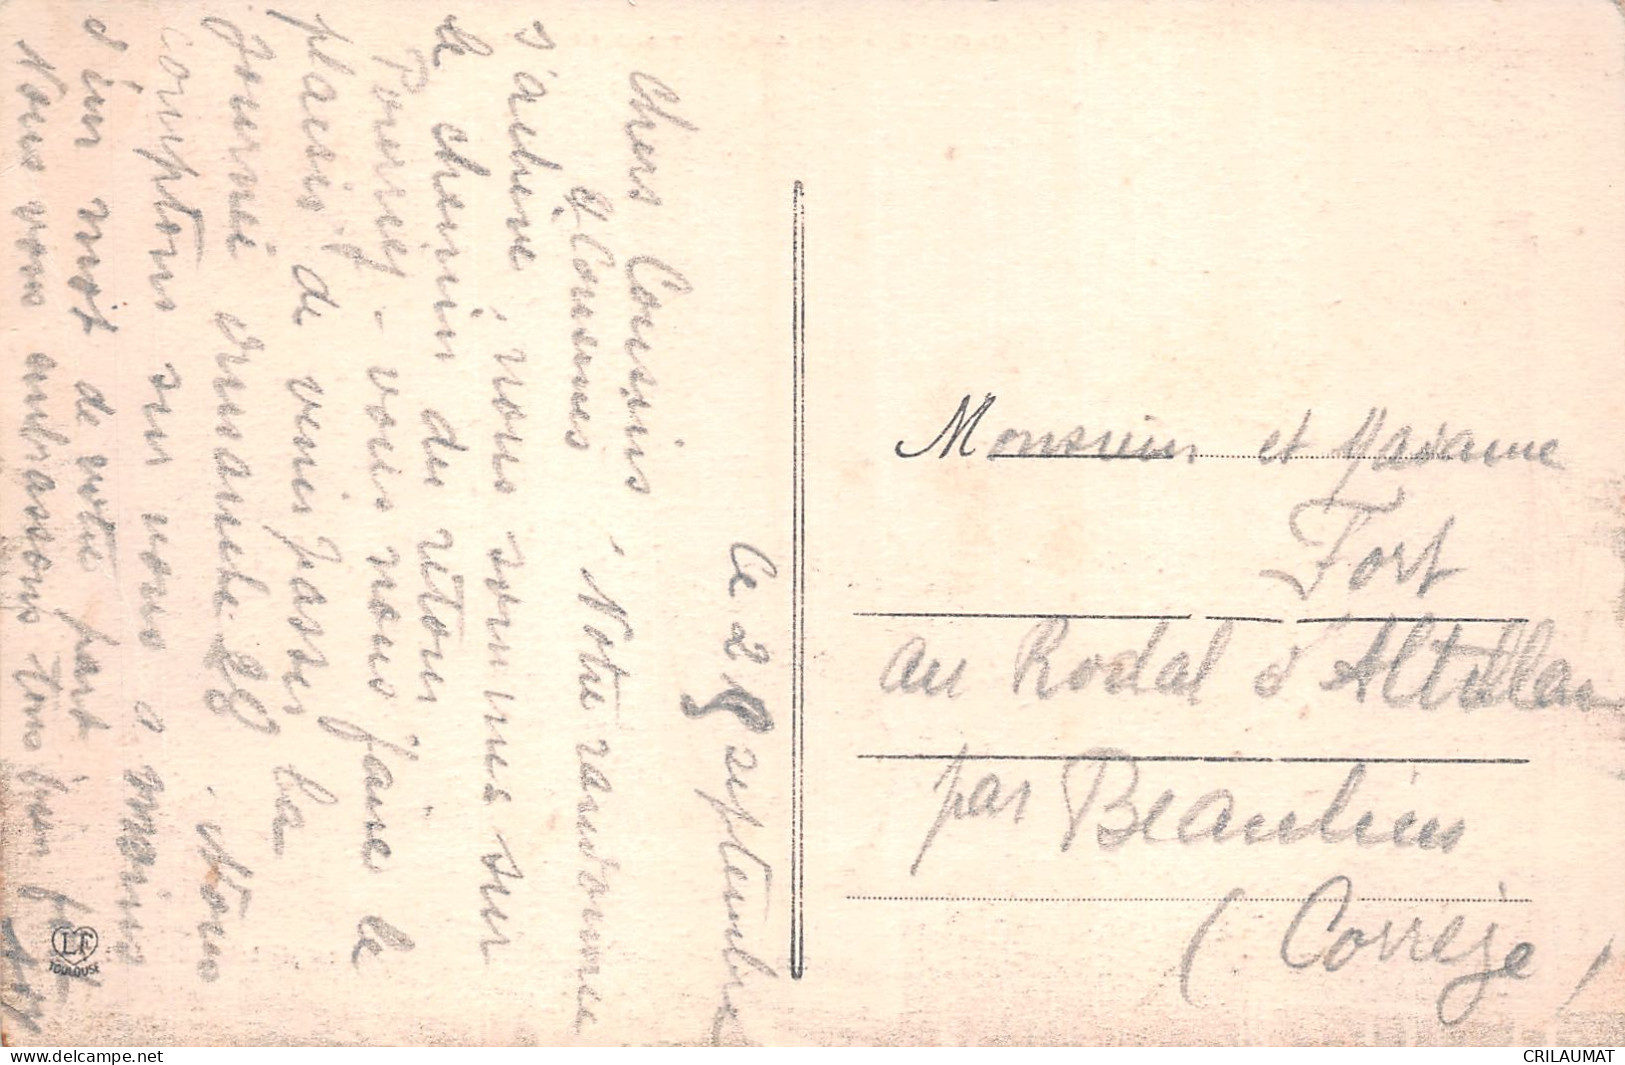 Ce 25 septembre
Chers Cousins
et Cousines, Notre randonnée
s'achève, nous sommes sur
le chemin du retour
Pourrez-vous nous faire le
plaisir de venir passer la
journée dimanche 28. Nous
comptons sur vous à moins
d'un mot de votre part
Nous vous embrassons tous bien fort
Monsieur et Madame
Fort
au Rodal d'Altillac
par Beaulieu
(Corrèze)
LF
TOULOUSE
CRILAUMAT